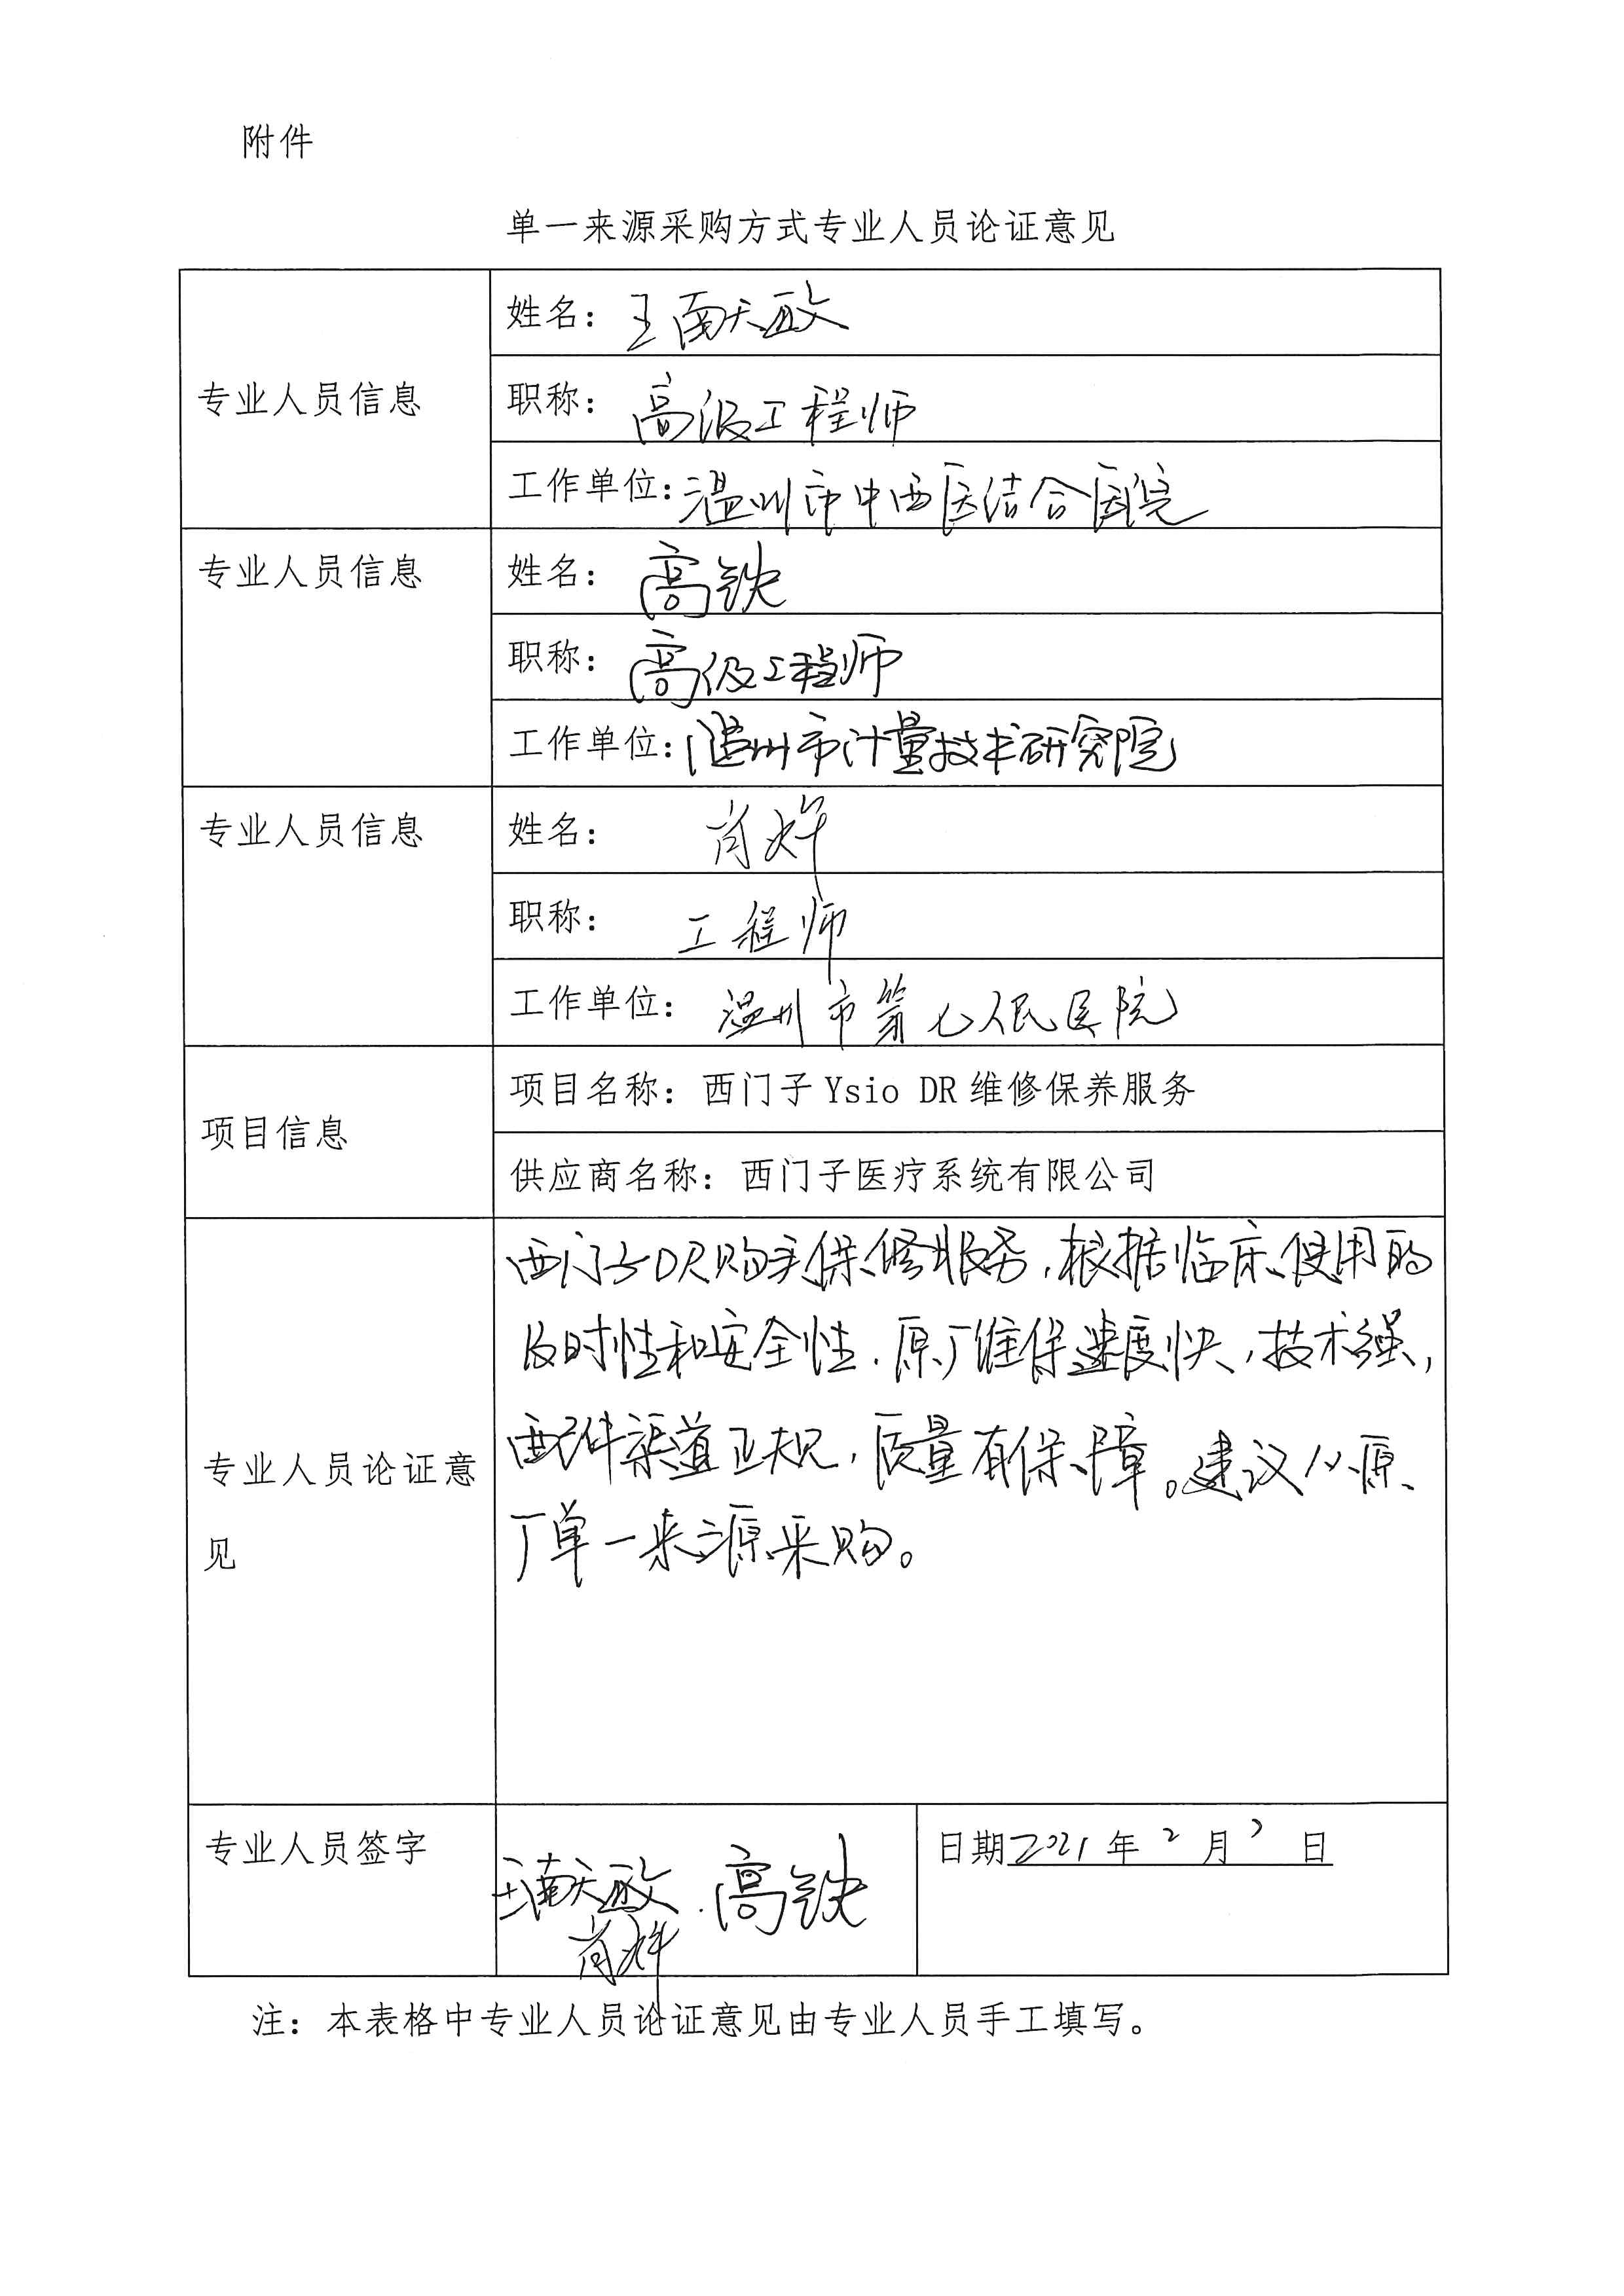 附件
单一来源采购方式专业人员论证意见
专业人员信息
姓名：王南
职称：高级工程师
工作单位：温州市中西医结合医院
专业人员信息
姓名：高铁
职称：高级工程师
工作单位：温州市计量技术研究院
专业人员信息
姓名：肖烨
职称：工程师
工作单位：温州市第七人民医院
项目信息
项目名称：西门子 Ysio DR 维修保养服务
供应商名称：西门子医疗系统有限公司
专业人员论证意
见
西门子DR购买保修服务，根据临床使用的
及时性和安全性，原厂维保速度快，技术强，
配件渠道正规，质量有保障。建议从原
厂单一来源采购。
专业人员签字
王南 高铁
肖烨
日期2021年2月 日
注：本表格中专业人员论证意见由专业人员手工填写。